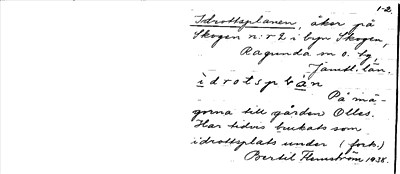 1-2.
Idrottsplanen, åker på
Skogen n:r 2 i byn Skogen,
Ragunda sn o. tg,
Jämtl. län.
ìdrotsplàn
På mä-
gorna till gården Olles.
Har tidvis brukats som
idrottsplats under (fork.)
Bertil Flemström 1938.